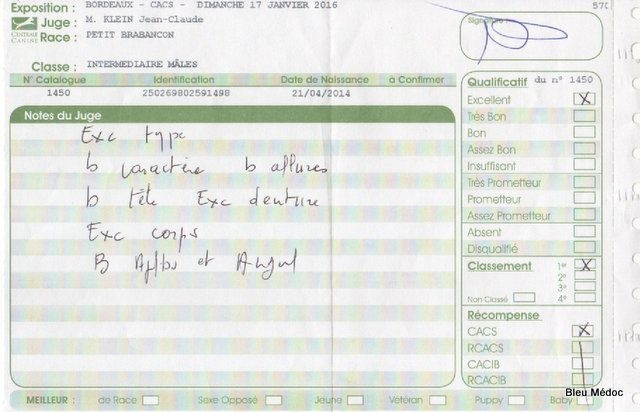 Exposition : BORDEAUX - CACS - DIMANCHE 17 JANVIER 2016
570
Juge : M. KLEIN Jean-Claude
CENTRALE CANINE
Race : PETIT BRABANCON
Classe : INTERMEDIAIRE MÂLES
N° Catalogue Identification Date de Naissance à Confirmer
1450 250269802591498 21/04/2014
Notes du Juge
Exc type
b caractère b allures
b tête Exc denture
Exc corps
B Aplbs et Angul
Qualificatif du n° 1450
Excellent X
Très Bon
Bon
Assez Bon
Insuffisant
Très Prometteur
Prometteur
Assez Prometteur
Absent
Disqualifié
Classement 1er X
2e
3e
Non Classé 4e
Récompense
CACS X
RCACS
CACIB
RCACIB
MEILLEUR : de Race Sexe Opposé Jeune Vétéran Puppy Baby
Bleu Médoc